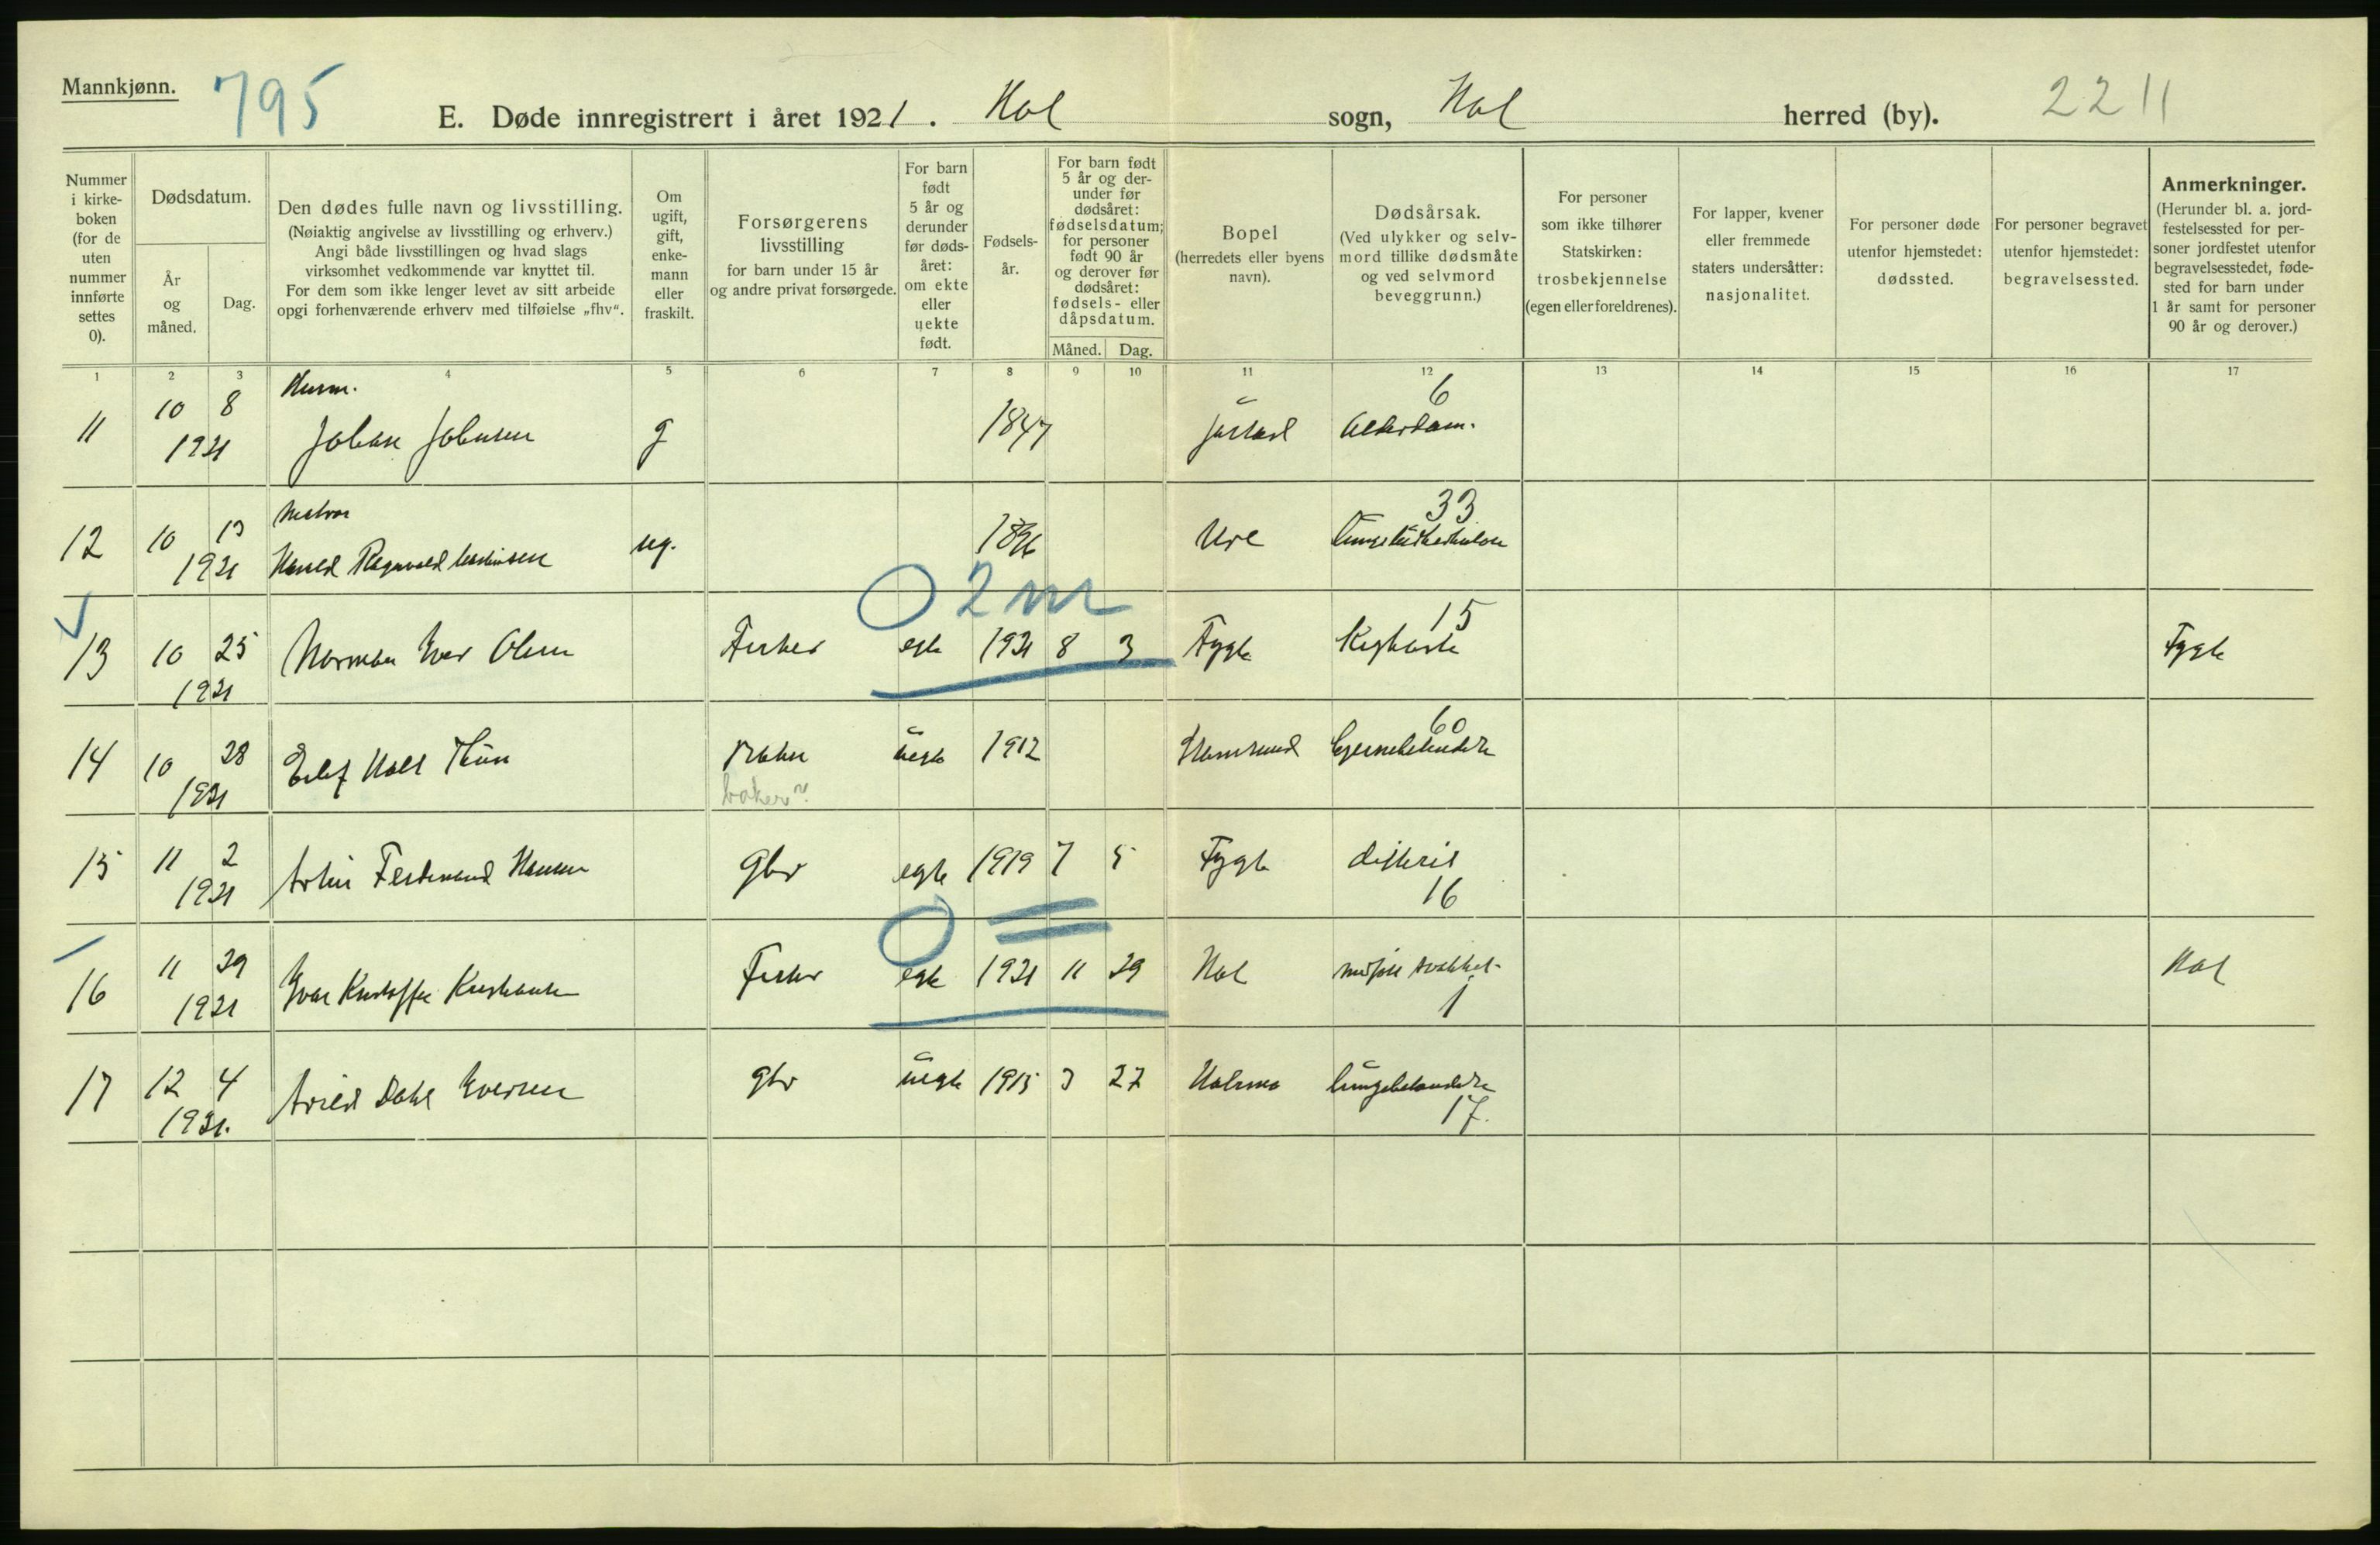 Mannkjønn.
795
E. Døde innregistrert i året 1921. Hol sogn, Hol herred (by).
2211
Nummer i kirke-boken (for de uten nummer innførte settes 0).
Dødsdatum.
År og måned.
Dag.
Den dødes fulle navn og livsstilling.
(Nøiaktig angivelse av livsstilling og erhverv.)
Angi både livsstillingen og hvad slags
virksomhet vedkommende var knyttet til.
For dem som ikke lenger levet av sitt arbeide
opgi forhenværende erhverv med tilføielse „fhv“.
Om ugift, gift, enke-mann eller fraskilt.
Forsørgerens
livsstilling
for barn under 15 år
og andre privat forsørgede.
For barn født 5 år og derunder før døds-året: om ekte eller uekte født.
Fødsels-år.
For barn født 5 år og der-under før dødsåret: fødselsdatum; for personer født 90 år og derover før dødsåret: fødsels- eller dåpsdatum.
Måned. Dag.
Bopel
(herredets eller byens
navn).
Dødsårsak.
(Ved ulykker og selv-
mord tillike dødsmåte
og ved selvmord
beveggrunn.)
For personer
som ikke tilhører
Statskirken:
trosbekjennelse
(egen eller foreldrenes).
For lapper, kvener
eller fremmede
staters undersåtter:
nasjonalitet.
For personer døde
utenfor hjemstedet:
dødssted.
For personer begravet
utenfor hjemstedet:
begravelsessted.
Anmerkninger.
(Herunder bl. a. jord-
festelsessted for per-
soner jordfestet utenfor
begravelsesstedet, føde-
sted for barn under
1 år samt for personer
90 år og derover.)
1 2 3 4 5 6 7 8 9 10 11 12 13 14 15 16 17
Husm. 6
11 10 8 Johan Johnsen g 1847 Alderdom.
1921
33
12 10 13 ug. 1896 Ure
1921 Harald Ragnvald
O 2 m
15
13 10 25 Norman Ivar Olsen Fisker egte 1921 8 3 Fygle Kighoste Fygle
1921
60
14 10 28 uegte 1912
1921 baker?
15 11 2 Ferdinand Hansen Gbr egte 1919 7 5 Fygle difterit
1921 16
O
16 11 29 Ivar Kristoffer Fisker egte 1921 11 29 Hol medfødt svakhet Hol
1921 1
17 12 4 Arild Dahl Iversen gbr uegte 1915 3 27 lungebetændelse
1921. 17.